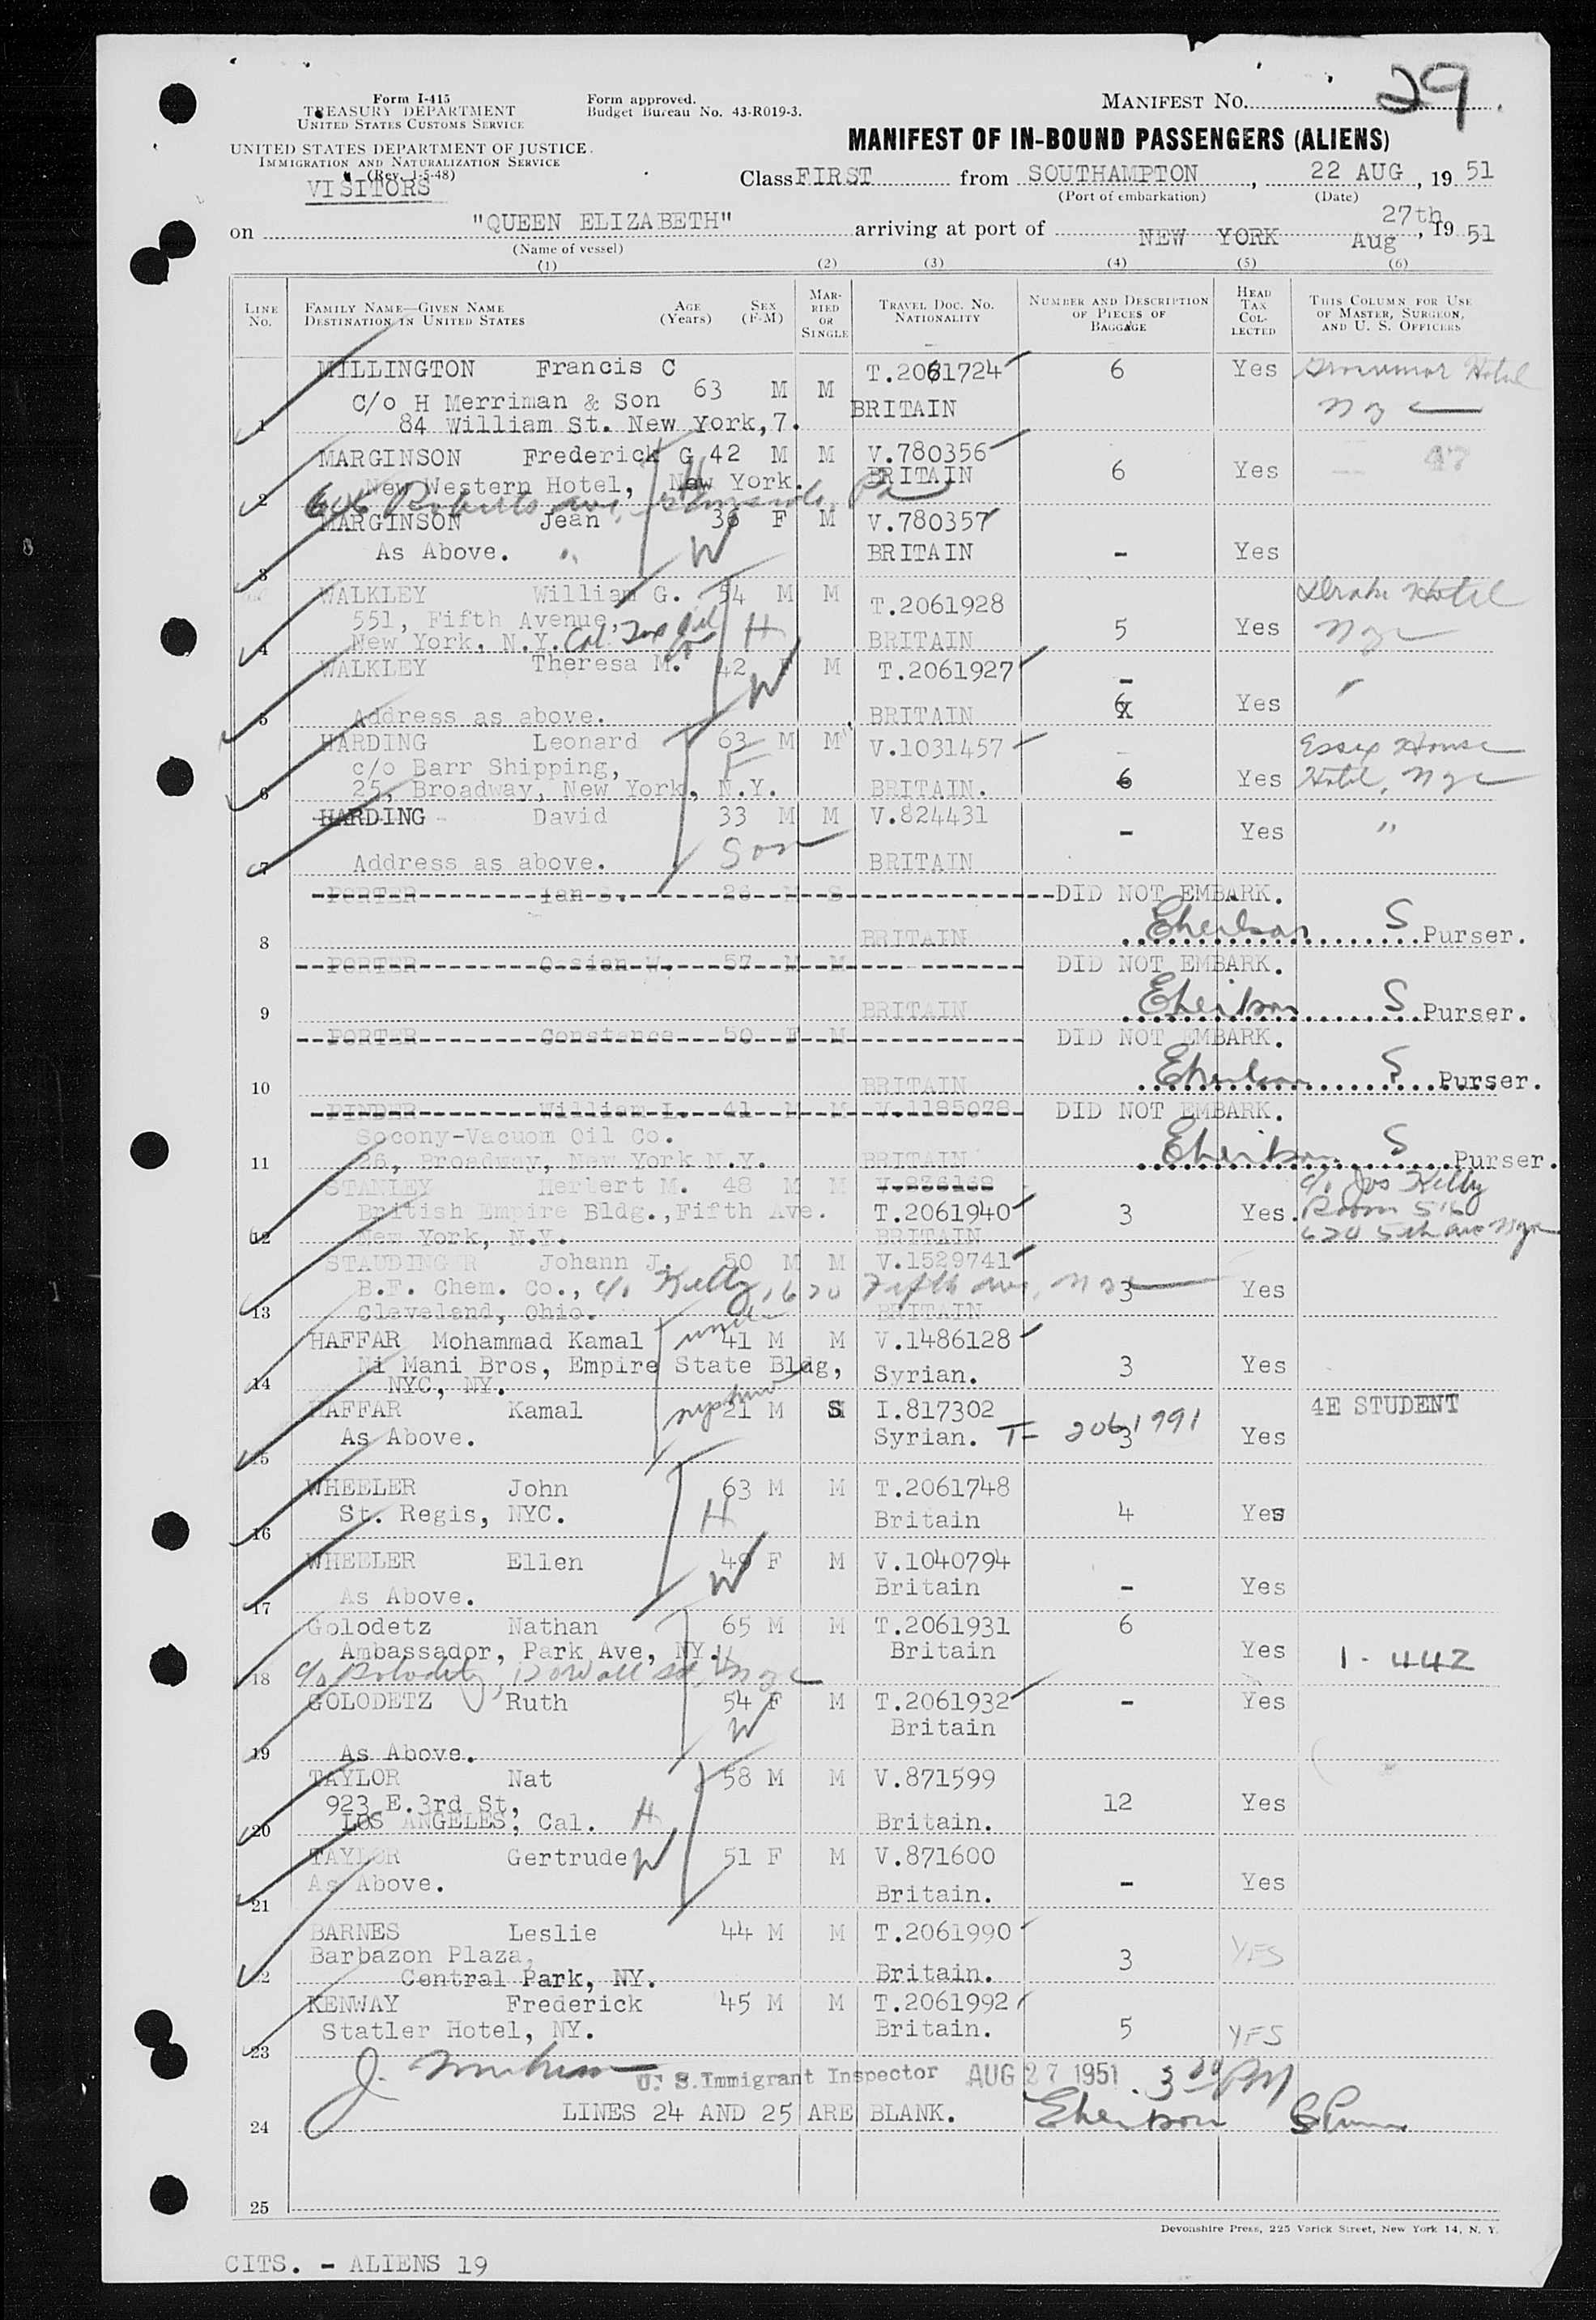 Form I-415
TREASURY DEPARTMENT
UNITED STATES CUSTOMS SERVICE
UNITED STATES DEPARTMENT OF JUSTICE
IMMIGRATION AND NATURALIZATION SERVICE
(Rev. 1-5-48)
VISITORS
Form approved.
Budget Bureau No. 43-R019-3.
MANIFEST NO. 29
MANIFEST OF IN-BOUND PASSENGERS (ALIENS)
Class FIRST from SOUTHAMPTON, 22 AUG, 19 51
(Port of embarkation) (Date)
on "QUEEN ELIZABETH" arriving at port of NEW YORK Aug 27th, 19 51
(Name of vessel)
(1) (2) (3) (4) (5) (6)
LINE NO. FAMILY NAME—GIVEN NAME DESTINATION IN UNITED STATES AGE (Years) SEX (F-M) MARRIED OR SINGLE TRAVEL DOC. NO. NATIONALITY NUMBER AND DESCRIPTION OF PIECES OF BAGGAGE HEAD TAX COLLECTED THIS COLUMN FOR USE OF MASTER, SURGEON, AND U. S. OFFICERS
MILLINGTON Francis C 63 M M T.2061724 6 Yes Grosvenor Hotel
C/o H Merriman & Son BRITAIN NYC
1 84 William St. New York, 7.
MARGINSON Frederick G 42 M M V.780356 6 Yes 47
2 New Western Hotel, New York. H BRITAIN
606 Roberts Ave, Pa
MARGINSON Jean 36 F M V.780357
3 As Above. " W BRITAIN - Yes
WALKLEY William G. 54 M M T.2061928 Drake Hotel
551, Fifth Avenue
4 New York, N.Y. Cal. H BRITAIN 5 Yes NYC
WALKLEY Theresa M. 42 F M T.2061927 -
W 6 X Yes "
5 Address as above. BRITAIN
HARDING Leonard 63 M M V.1031457 Essex House
c/o Barr Shipping, F 6 Yes Hotel, NYC
6 25, Broadway, New York, N.Y. BRITAIN.
HARDING David 33 M M V.824431 - Yes "
7 Address as above. Son BRITAIN
PORTER Ian S. 26 M S DID NOT EMBARK.
8 BRITAIN S Purser.
PORTER Ossian W. 57 M M DID NOT EMBARK.
9 BRITAIN S Purser.
PORTER Constance 50 F M DID NOT EMBARK.
10 BRITAIN S Purser.
PINDER William L. 41 M M V.1185078 DID NOT EMBARK.
Socony-Vacuom Oil Co.
11 26, Broadway, New York N.Y. BRITAIN S Purser.
STANLEY Herbert M. 48 M M V.236168 c/o Jos Kelly
British Empire Bldg., Fifth Ave. T.2061940 3 Yes. Room 516
12 New York, N.Y. BRITAIN 620 5th Ave NYC
STAUDINGER Johann J. 50 M M V.1529741
B.F. Chem. Co., c/o Kelly, 620 Fifth Ave, NYC 3 Yes
13 Cleveland, Ohio. BRITAIN
HAFFAR Mohammad Kamal uncle 41 M M V.1486128
Ni Mani Bros, Empire State Bldg, Syrian. 3 Yes
14 NYC, NY.
HAFFAR Kamal nephew 21 M S I.817302 4E STUDENT
15 As Above. Syrian. T- 2061991 3 Yes
WHEELER John 63 M M T.2061748
16 St. Regis, NYC. H Britain 4 Yes
WHEELER Ellen 49 F M V.1040794
17 As Above. W Britain - Yes
Golodetz Nathan 65 M M T.2061931 6
Ambassador, Park Ave, NY. H Britain Yes 1-442
18 c/o Golodetz, 120 Wall St, NYC
GOLODETZ Ruth 54 F M T.2061932 - Yes
W Britain
19 As Above.
TAYLOR Nat 58 M M V.871599
923 E.3rd St, 12 Yes
20 LOS ANGELES, Cal. H Britain.
TAYLOR Gertrude W 51 F M V.871600
As Above. - Yes
21 Britain.
BARNES Leslie 44 M M T.2061990
Barbazon Plaza, 3 YES
22 Central Park, NY. Britain.
KENWAY Frederick 45 M M T.2061992
Statler Hotel, NY. Britain. 5 YES
23
J. U. S. Immigrant Inspector AUG 27 1951 3 30 PM
LINES 24 AND 25 ARE BLANK.
24
25
Devonshire Press, 225 Varick Street, New York 14, N. Y.
CITS. - ALIENS 19